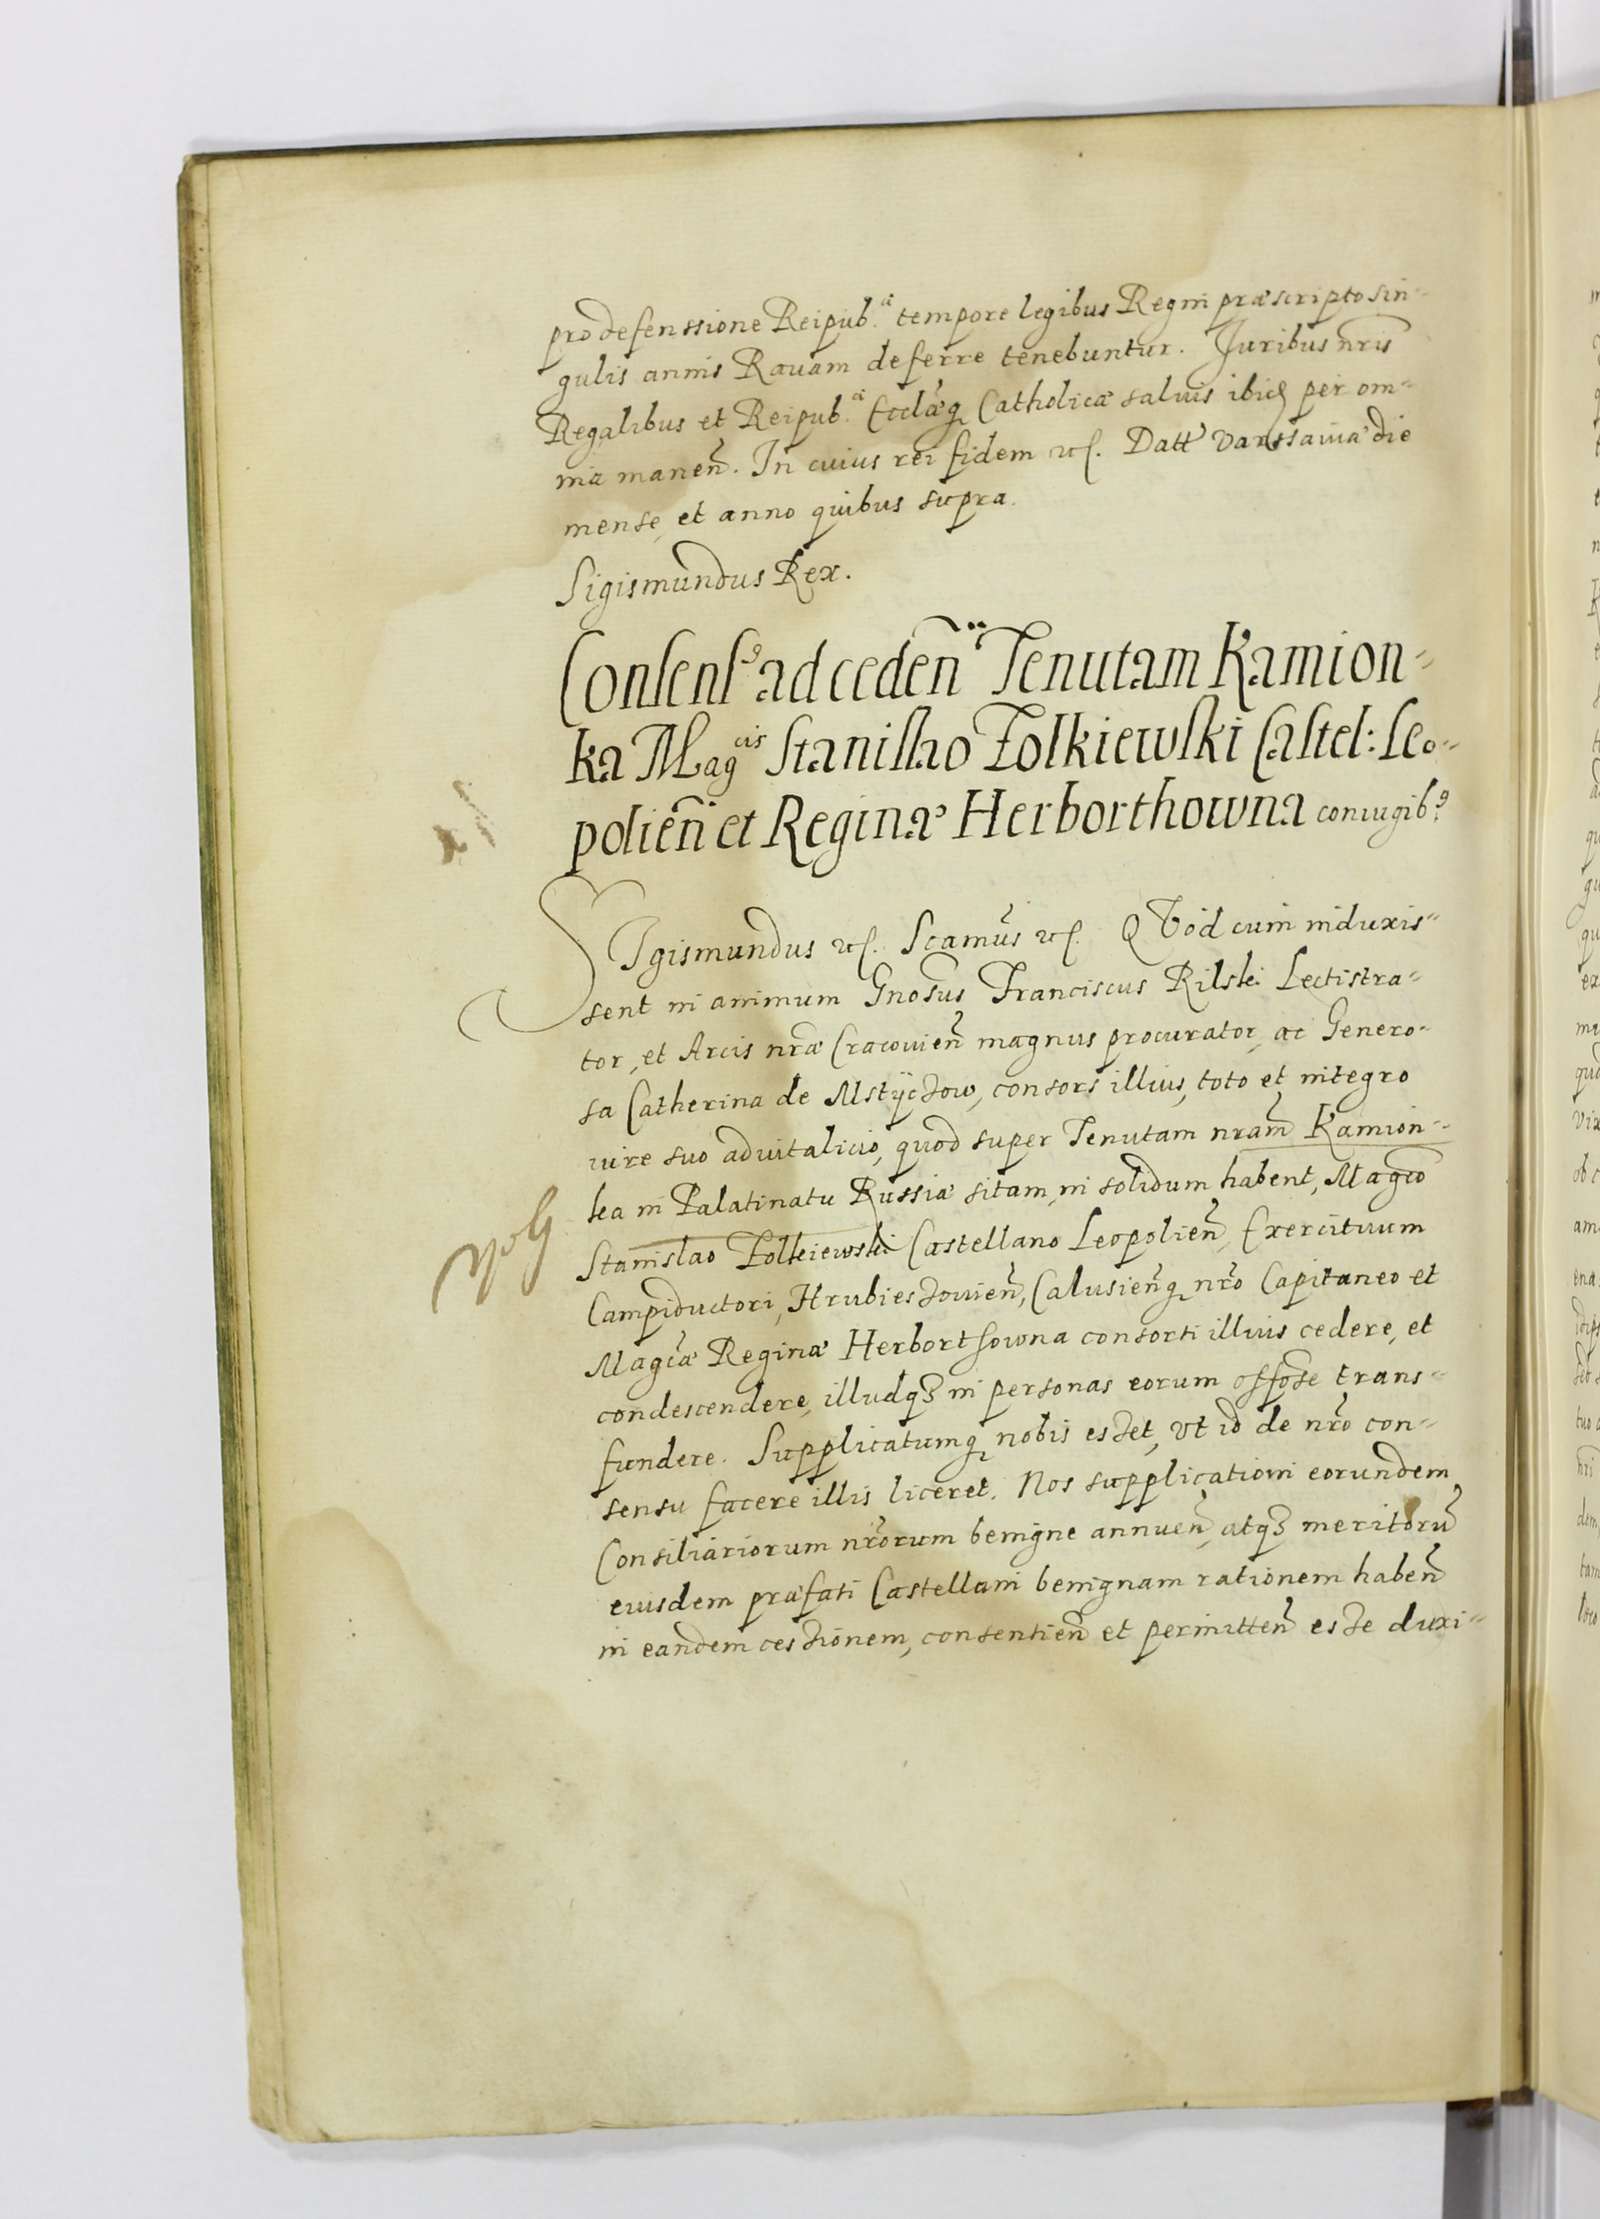 pro defenssione Reipub.cæ tempore legibus Regni præscripto sin-
gulis annis Rauam deferre tenebuntur. Juribus nr̃is
Regalibus et Reipub.cæ Ecclæq; Catholicæ saluis ibid per om-
nia manen̄. In cuius rei fidem etc. Datt Varssauiæ die
mense, et anno quibus supra.
Sigismundus Rex.
Consensꝰ ad ceden̄ Tenutam Kamion-
ka Mag.cis Stanislao Żolkiewski Castel: Leo-
polien̄ et Reginæ Herborthowna coniugibꝰ
SIgismundus etc. Scamūs etc. QVod cum induxis-
sent in animum Gnosūs Franciscus Rilski Lectistra-
tor, et Arcis nr̃æ Cracouien̄ magnus procurator, ac Genero-
sa Catherina de Mstyczow, consors illius, toto et integro
iure suo aduitalicio, quod super Tenutam nr̃am Kamion-
ka in Palatinatu Russiæ sitam, in solidum habent, Magco
Stanislao Zolkiewski Castellano Leopolien̄, Exercituum
Campiductori, Hrubieszouien̄, Calusien̄q; nr̃o Capitaneo et
Magcæ Reginæ Herbortsowna consorti illius cedere, et
condescendere, illudq3 in personas eorum trans-
fundere. Supplicatumq; nobis esset, vt id de nr̃o con-
sensu facere illis liceret. Nos supplicationi eorundem
Consiliariorum nr̃orum benigne annuen̄, atq3 meritorū
eiusdem præfati Castellani benignam rationem haben̄
in eandem cessionem, consentien̄ et permitten̄ esse duxi-